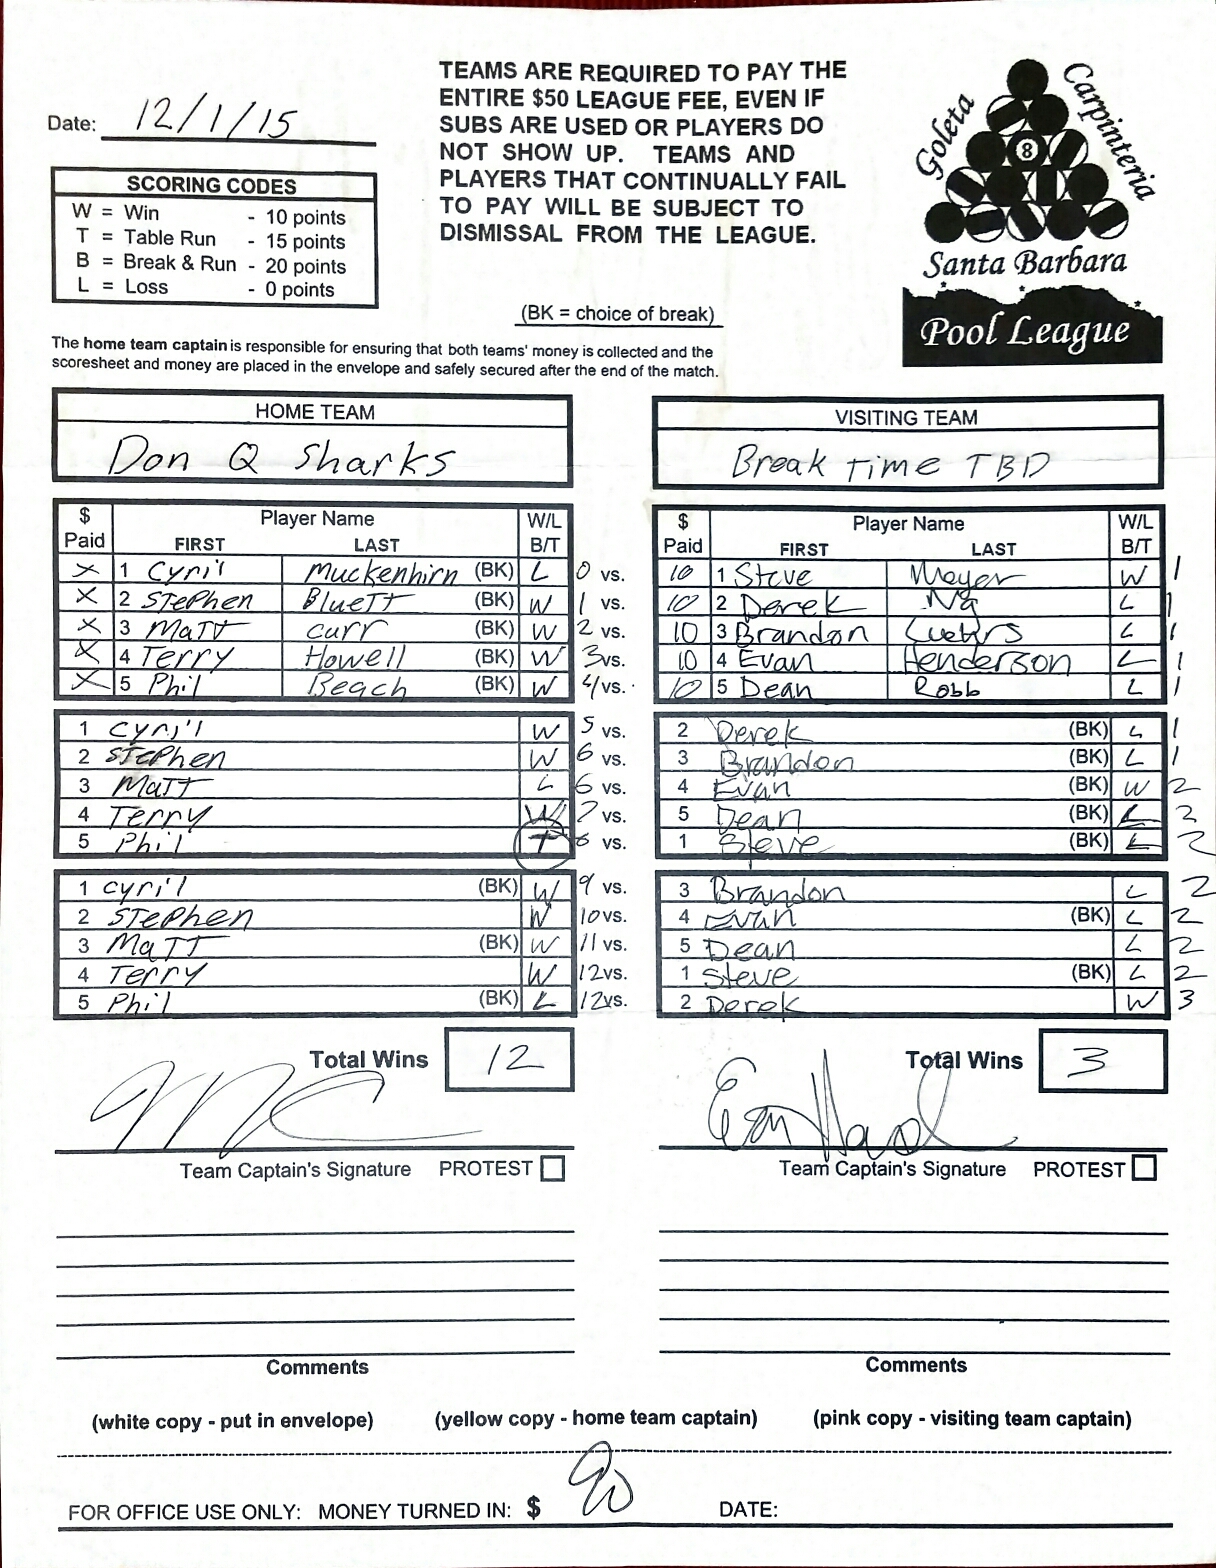 Date: 12/1/15
SCORING CODES
W = Win - 10 points
T = Table Run - 15 points
B = Break & Run - 20 points
L = Loss - 0 points
TEAMS ARE REQUIRED TO PAY THE
ENTIRE $50 LEAGUE FEE, EVEN IF
SUBS ARE USED OR PLAYERS DO
NOT SHOW UP. TEAMS AND
PLAYERS THAT CONTINUALLY FAIL
TO PAY WILL BE SUBJECT TO
DISMISSAL FROM THE LEAGUE.
(BK = choice of break)
Goleta
Carpinteria
8
Santa Barbara
Pool League
The home team captain is responsible for ensuring that both teams' money is collected and the
scoresheet and money are placed in the envelope and safely secured after the end of the match.
HOME TEAM
Don Q Sharks
VISITING TEAM
Break Time TBD
$ Paid Player Name FIRST LAST W/L B/T
$ Paid Player Name FIRST LAST W/L B/T
X 1 Cyril Muckenhirn (BK) L 0 vs. 10 1 Steve Meyer W 1
X 2 Stephen Bluett (BK) W 1 vs. 10 2 Derek Ng L 1
X 3 Matt Carr (BK) W 2 vs. 10 3 Brandon Luehrs L 1
X 4 Terry Howell (BK) W 3 vs. 10 4 Evan Henderson L 1
X 5 Phil Beach (BK) W 4 vs. 10 5 Dean Robb L 1
1 Cyril W 5 vs. 2 Derek (BK) L 1
2 Stephen W 6 vs. 3 Brandon (BK) L 1
3 Matt L 6 vs. 4 Evan (BK) W 2
4 Terry W 7 vs. 5 Dean (BK) L 2
5 Phil T 8 vs. 1 Steve (BK) L 2
1 Cyril (BK) W 9 vs. 3 Brandon L 2
2 Stephen W 10 vs. 4 Evan (BK) L 2
3 Matt (BK) W 11 vs. 5 Dean L 2
4 Terry W 12 vs. 1 Steve (BK) L 2
5 Phil (BK) L 12 vs. 2 Derek W 3
Total Wins 12
Total Wins 3
Team Captain's Signature PROTEST
Team Captain's Signature PROTEST
Comments
Comments
(white copy - put in envelope) (yellow copy - home team captain) (pink copy - visiting team captain)
FOR OFFICE USE ONLY: MONEY TURNED IN: $ 90 DATE: